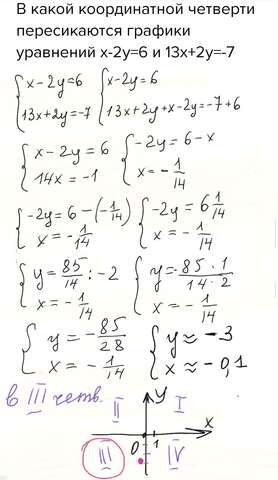 В какой координатной четверти
пересикаются графики
уравнений x-2y=6 и 13x+2y=-7
{x-2y=6 {x-2y=6
{13x+2y=-7 {13x+2y+x-2y=-7+6
{x-2y=6 {-2y=6-x
{14x=-1 {x=-1/14
{-2y=6-(-1/14) {-2y=6 1/14
{x=-1/14 {x=-1/14
{y=85/14:-2 {y=-85·1/14·2
{x=-1/14 {x=-1/14
{y=-85/28 {y≈-3
{x=-1/14 {x≈-0,1
в III четв.
y
II I
x
0 1
III IV